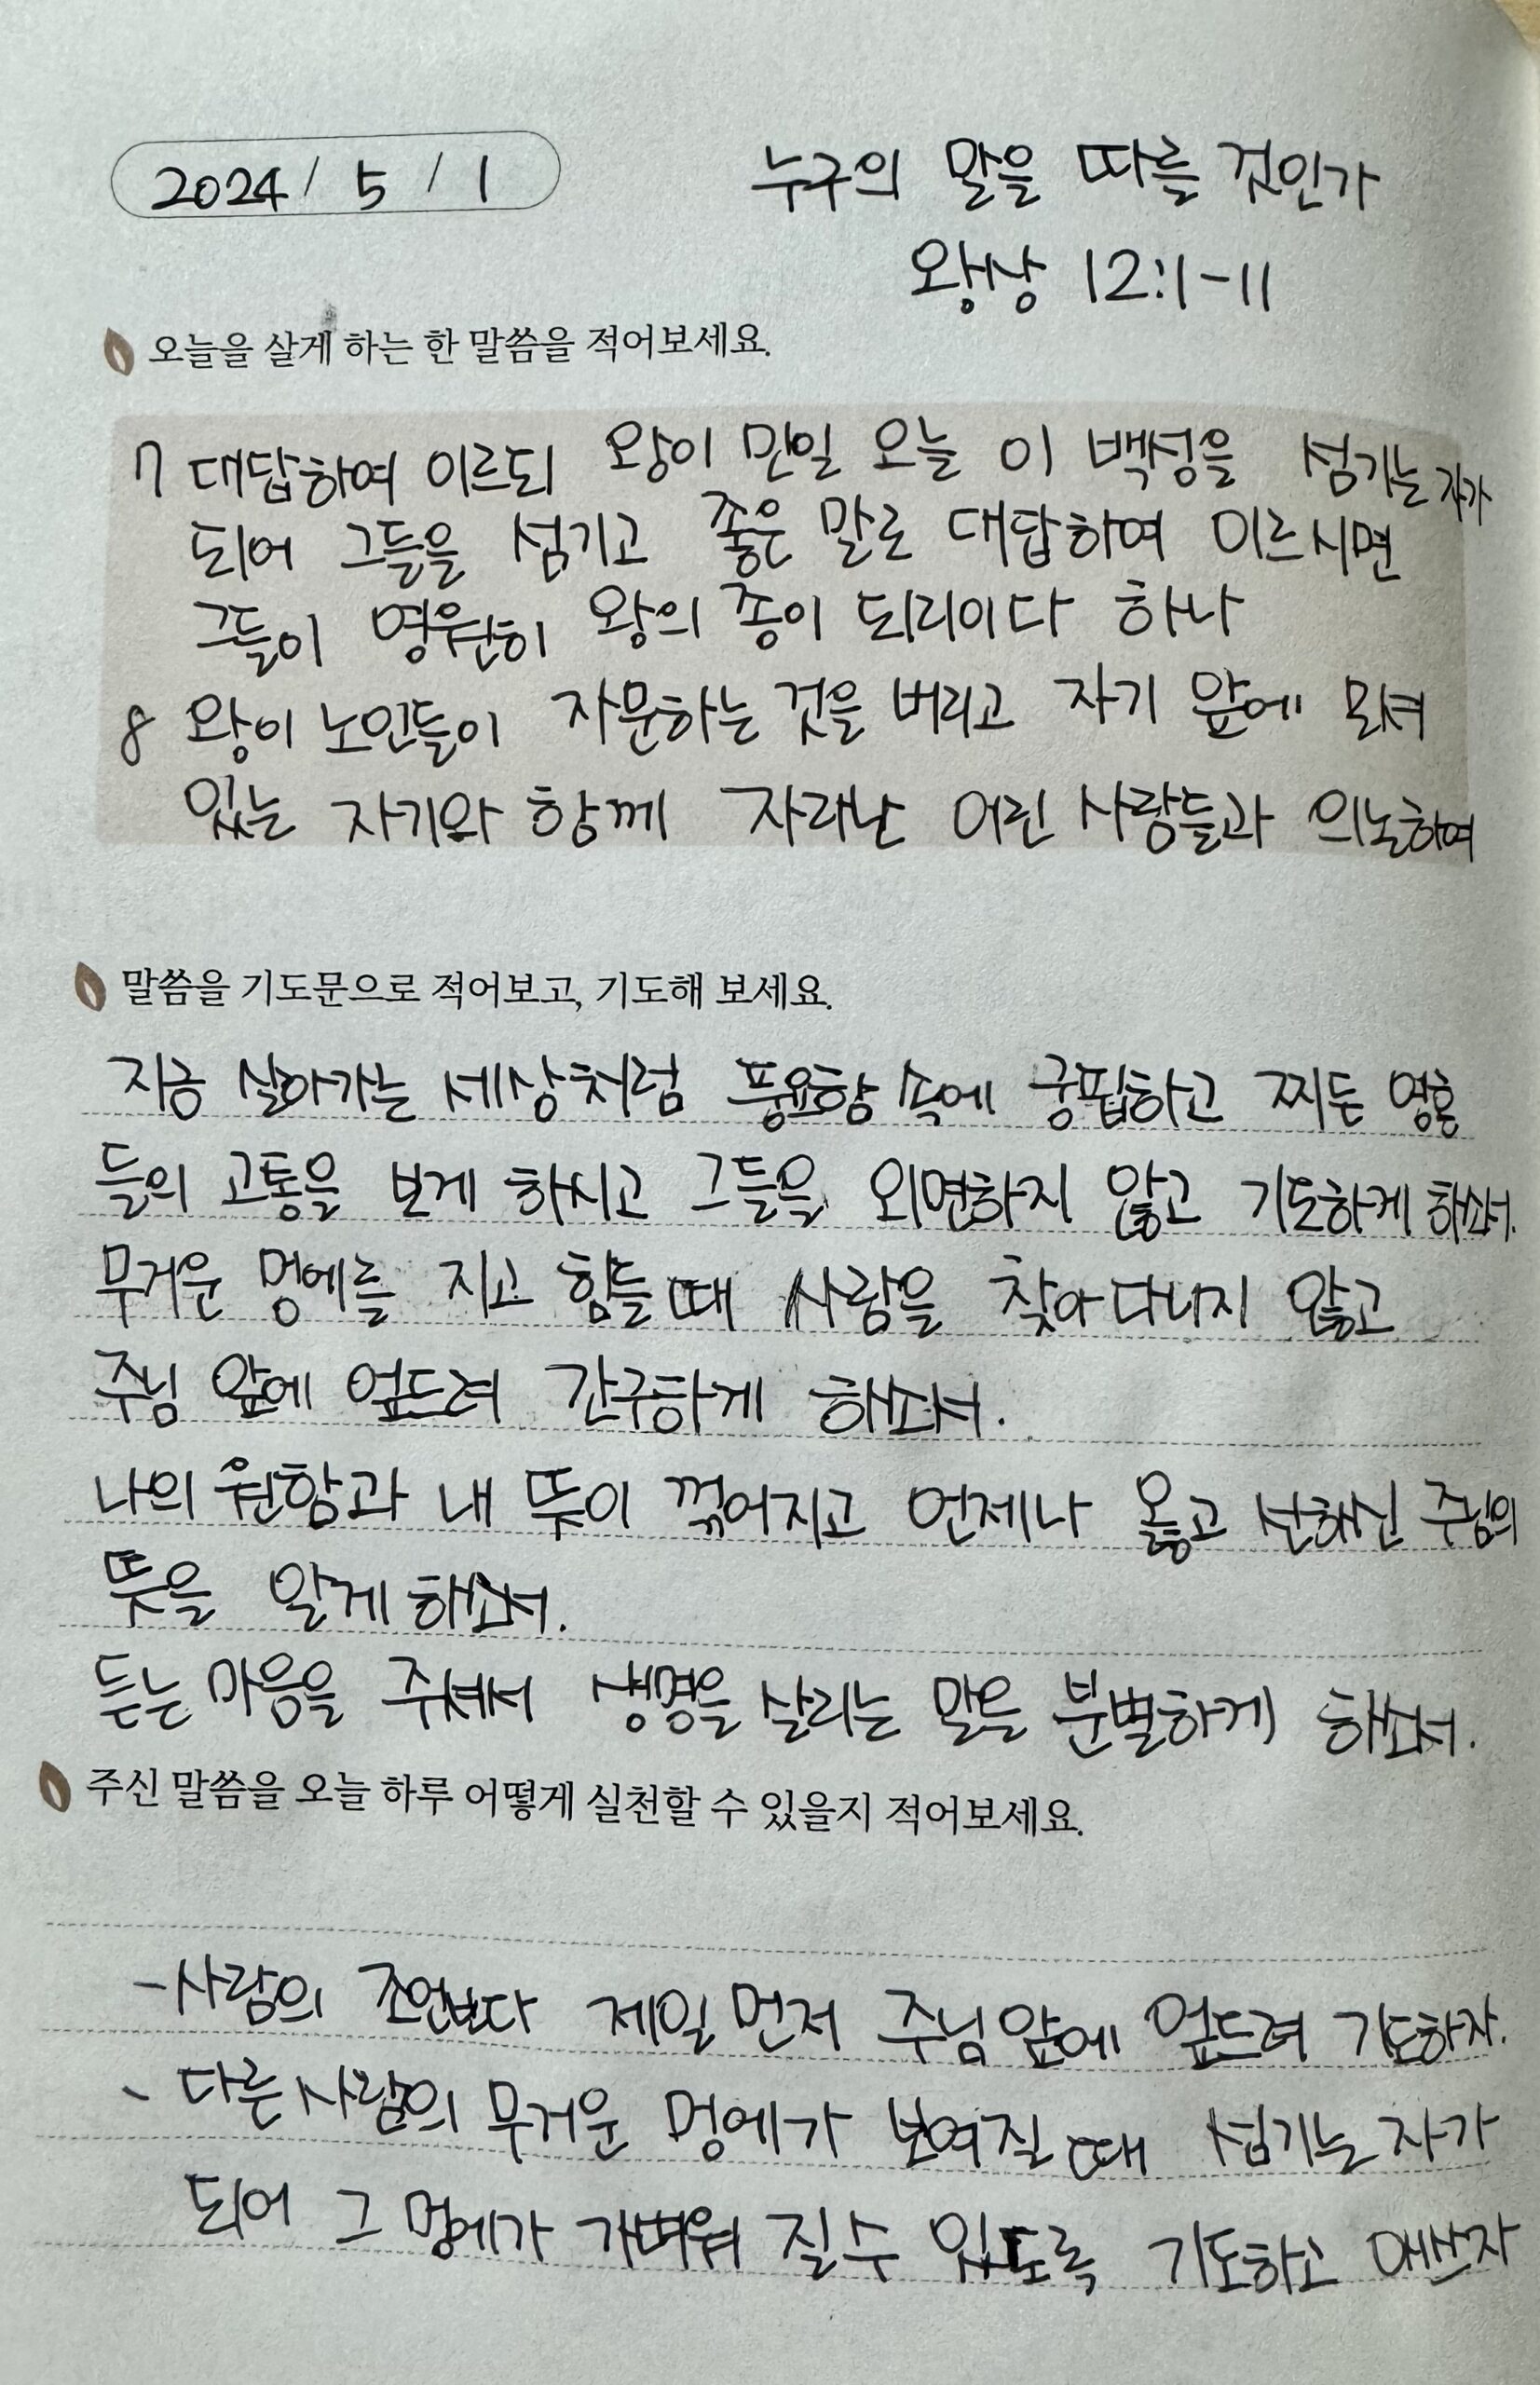 2024 / 5 / 1
누구의 말을 따를 것인가
왕상 12:1-11
오늘을 살게 하는 한 말씀을 적어보세요.
7 대답하여 이르되 왕이 만일 오늘 이 백성을 섬기는 자가
되어 그들을 섬기고 좋은 말로 대답하여 이르시면
그들이 영원히 왕의 종이 되리이다 하나
8 왕이 노인들이 자문하는 것을 버리고 자기 앞에 모셔
있는 자기와 함께 자라난 어린 사람들과 의논하여
말씀을 기도문으로 적어보고, 기도해 보세요.
지금 살아가는 세상처럼 풍요함 속에 궁핍하고 찌든 영혼
들의 고통을 보게 하시고 그들을 외면하지 않고 기도하게 하소서.
무거운 멍에를 지고 힘들 때 사람을 찾아다니지 않고
주님 앞에 엎드려 간구하게 하소서.
나의 원함과 내 뜻이 꺾어지고 언제나 옳고 선하신 주님의
뜻을 알게 하소서.
듣는 마음을 주셔서 생명을 살리는 말을 분별하게 하소서.
주신 말씀을 오늘 하루 어떻게 실천할 수 있을지 적어보세요.
- 사람의 조언보다 제일 먼저 주님 앞에 엎드려 기도하자.
- 다른 사람의 무거운 멍에가 보여질 때 섬기는 자가
되어 그 멍에가 가벼워 질 수 있도록 기도하고 애쓰자